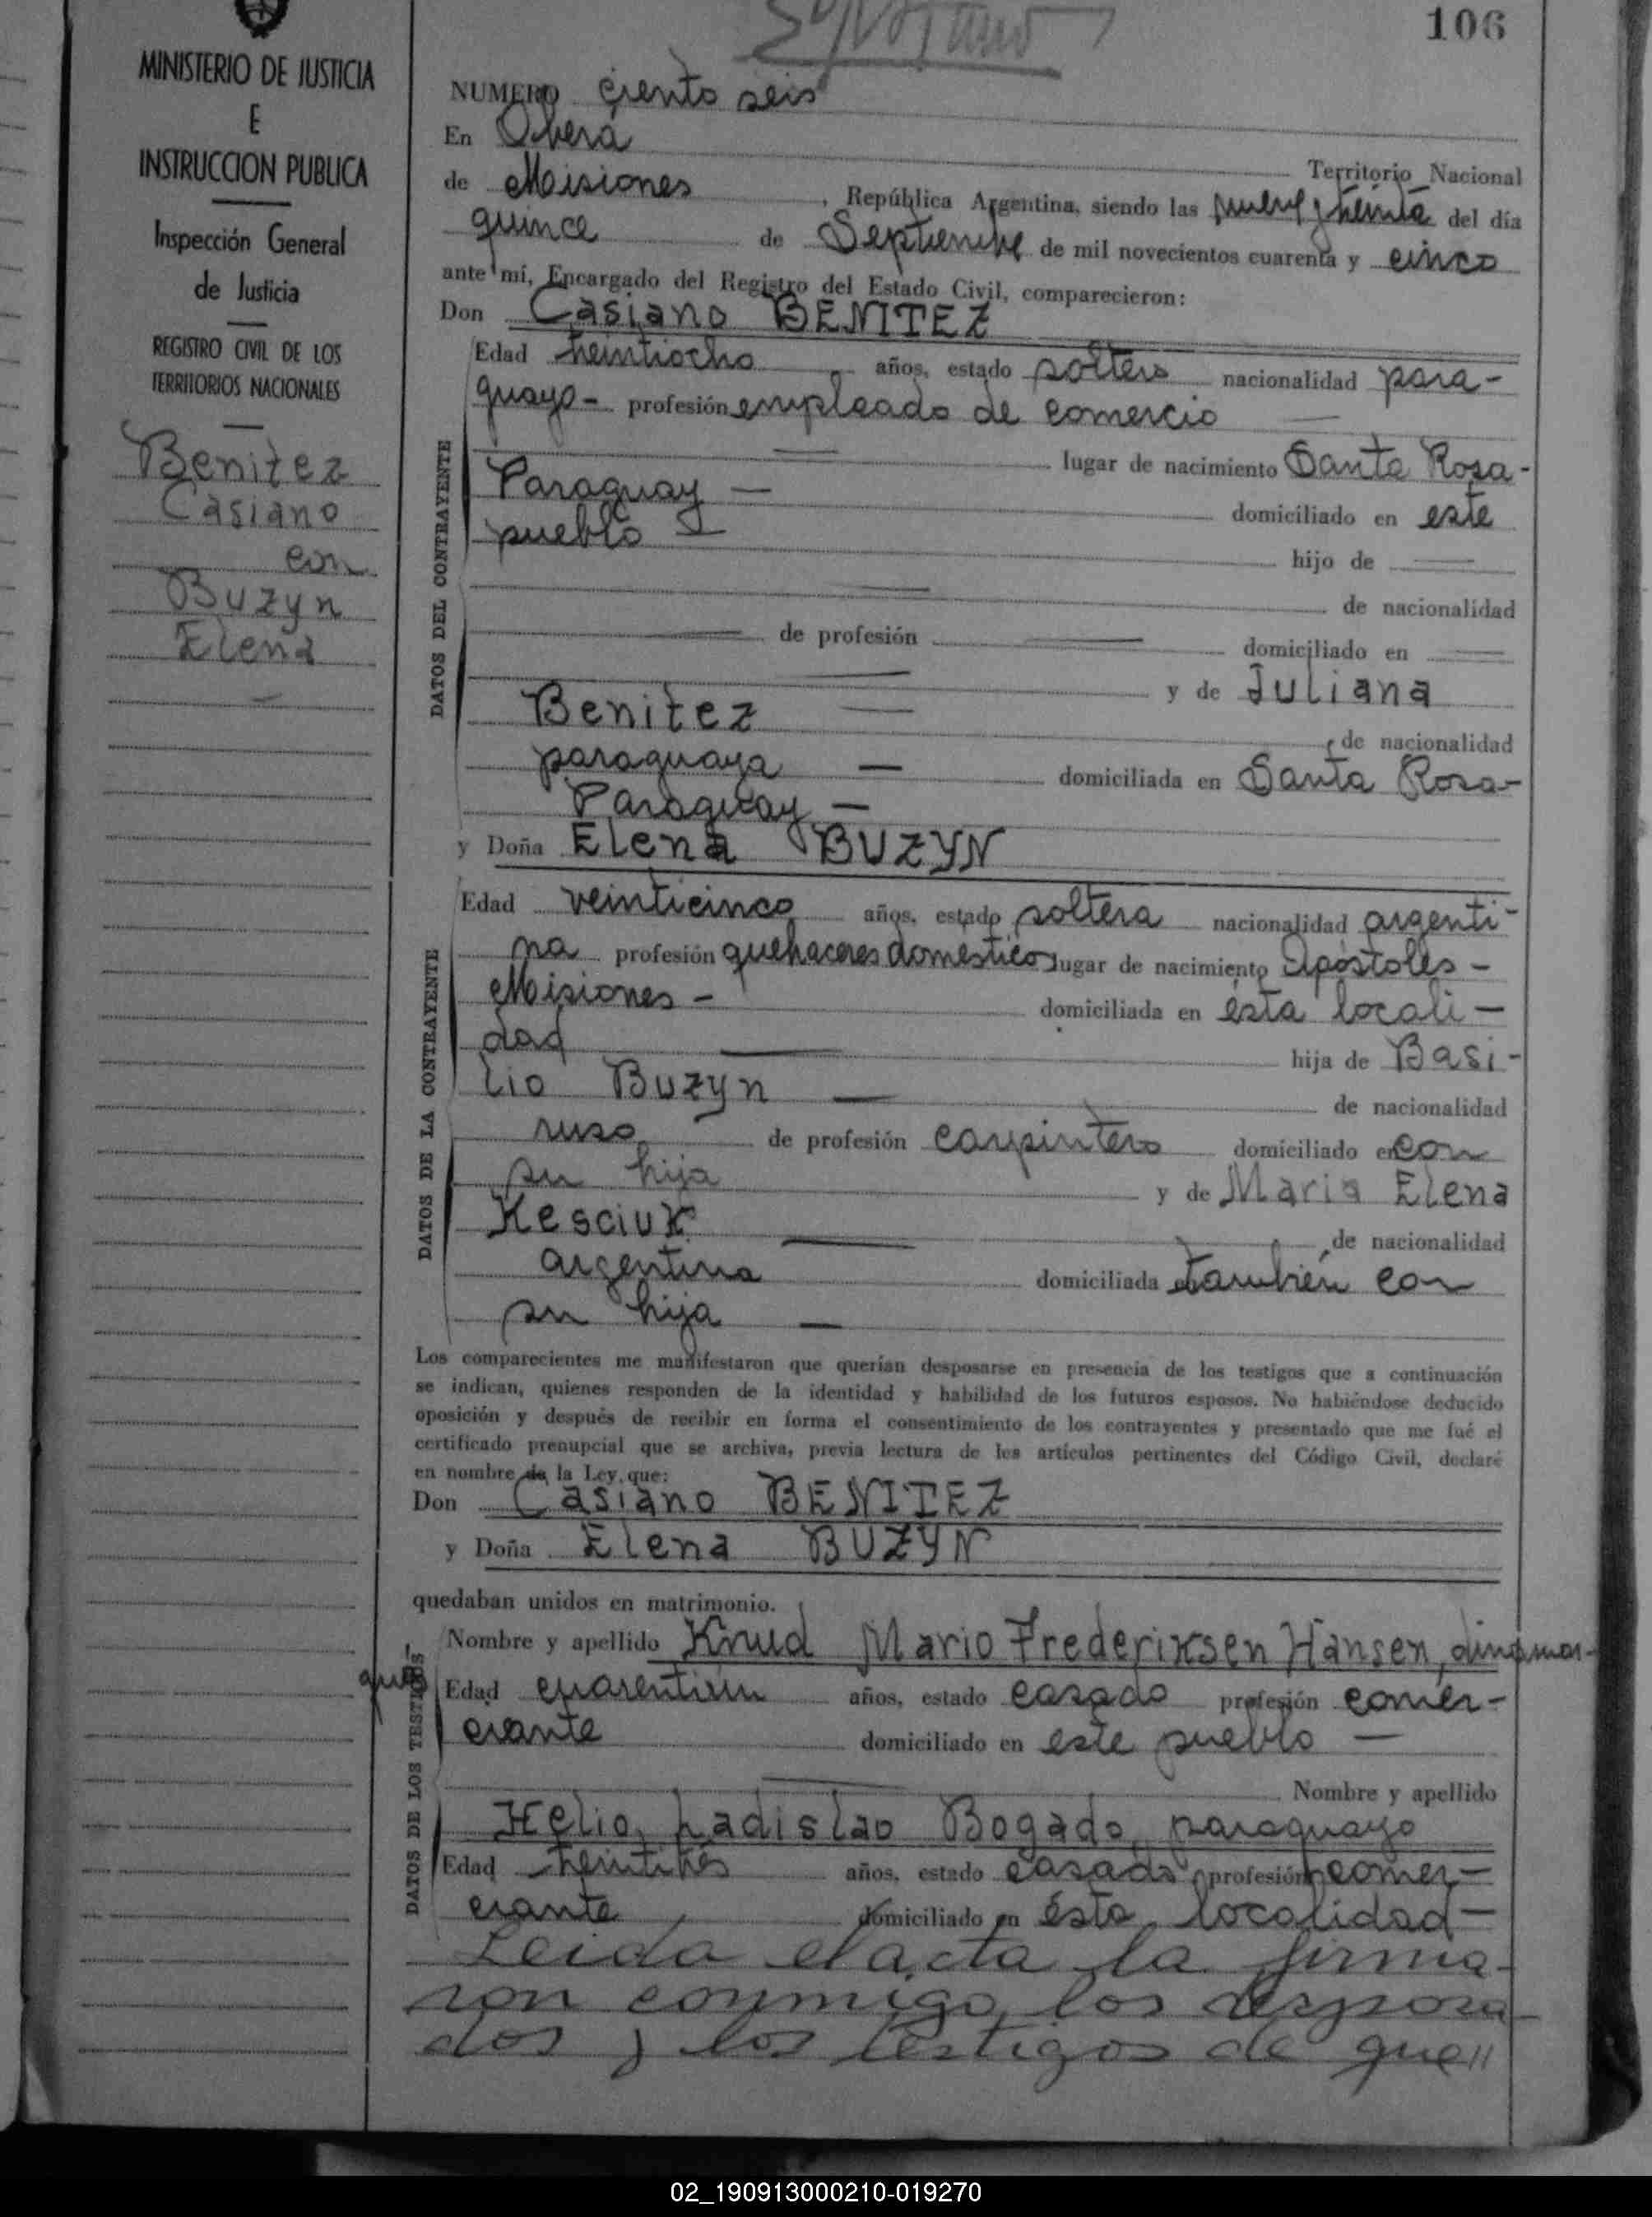 106
MINISTERIO DE JUSTICIA
E
INSTRUCCION PUBLICA
Inspección General
de Justicia
REGISTRO CIVIL DE LOS
TERRITORIOS NACIONALES
Benitez
Casiano
con
Buzyn
Elena
NUMERO ciento seis
En Oberá
Territorio Nacional
de Misiones, República Argentina, siendo las nueve y treinta del día
quince de Septiembre de mil novecientos cuarenta y cinco
ante mí, Encargado del Registro del Estado Civil, comparecieron:
Don Casiano BENITEZ
DATOS DEL CONTRAYENTE
Edad treintiocho años, estado soltero nacionalidad para-
guayo - profesión empleado de comercio
lugar de nacimiento Santa Rosa -
Paraguay — domiciliado en este
pueblo — hijo de —
— de nacionalidad
— de profesión — domiciliado en —
— y de Juliana
Benitez — de nacionalidad
paraguaya — domiciliada en Santa Rosa -
Paraguay —
y Doña Elena BUZYN
DATOS DE LA CONTRAYENTE
Edad veinticinco años, estado soltera nacionalidad argenti-
na profesión quehaceres domésticos lugar de nacimiento Apóstoles -
Misiones - domiciliada en ésta locali -
dad — hija de Basi -
lio Buzyn — de nacionalidad
ruso de profesión carpintero domiciliado en con
su hija y de Maria Elena
Kesciuk — de nacionalidad
argentina domiciliada en también con
su hija —
Los comparecientes me manifestaron que querían desposarse en presencia de los testigos que a continuación
se indican, quienes responden de la identidad y habilidad de los futuros esposos. No habiéndose deducido
oposición y después de recibir en forma el consentimiento de los contrayentes y presentado que me fué el
certificado prenupcial que se archiva, previa lectura de los artículos pertinentes del Código Civil, declaré
en nombre de la Ley, que:
Don Casiano BENITEZ
y Doña Elena BUZYN
quedaban unidos en matrimonio.
DATOS DE LOS TESTIGOS
Nombre y apellido Knud Mario Frederiksen Hansen, dinamar-
qués Edad cuarentiún años, estado casado profesión comer-
ciante domiciliado en este pueblo —
— Nombre y apellido
Helio Ladislao Bogado, paraguayo
Edad treintitrés años, estado casado, profesión comer-
ciante domiciliado en ésta localidad -
Leida el acta la firma-
ron conmigo los desposa-
dos y los testigos de que//
02_190913000210-019270